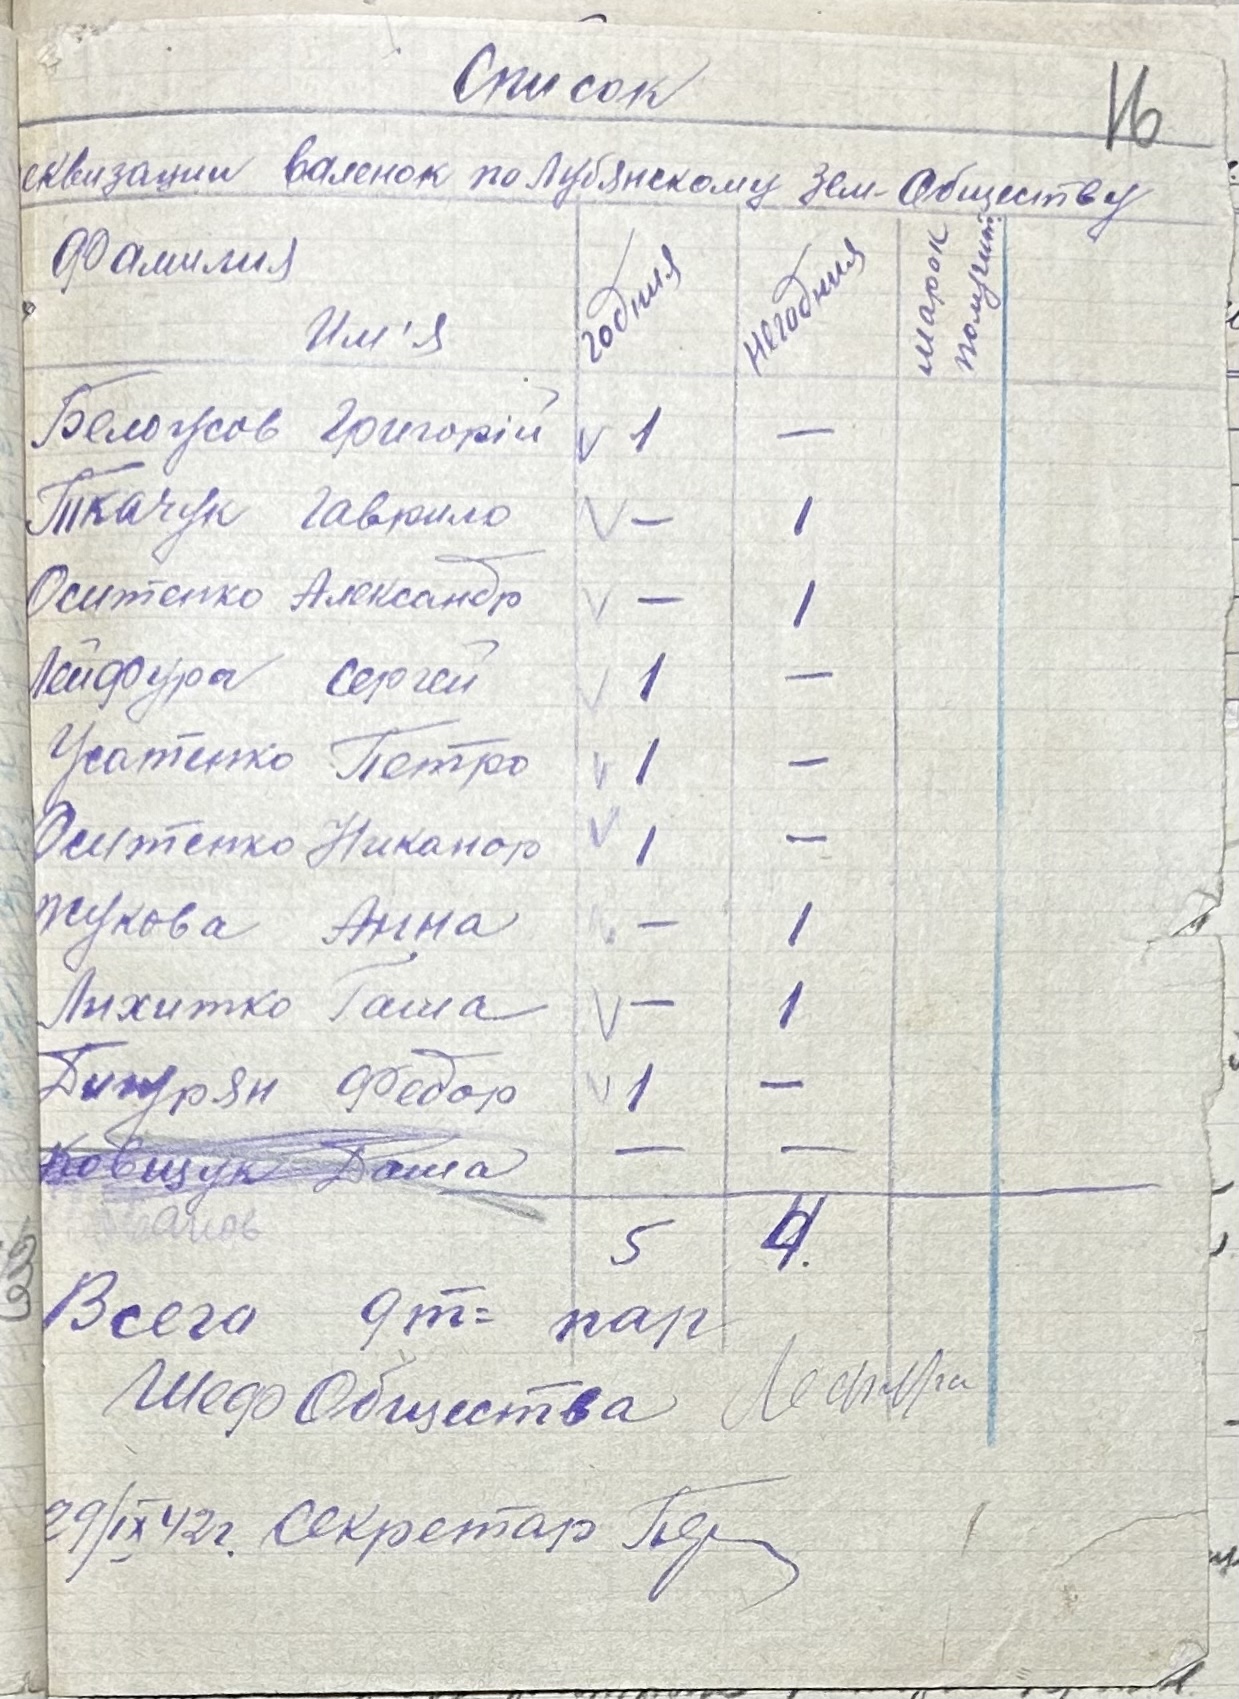 Список
16
еквизации валенок по Лубянскому Зем-Обществу
Фамилия
Им'я
годния
негодния
марок получит.
Белоусов Григорій v 1 —
Ткачук Гаврило v — 1
Оситенко Александр v — 1
Лейфура Сергей v 1 —
Усатенко Петро v 1 —
Оситенко Никанор v 1 —
Жукова Анна v — 1
Лихитко Гаша v — 1
Федор v 1 —
Ковщук Даша — —
5 4.
Всего 9 т= пар
Шеф Общества
29/IX 42г. Секретар